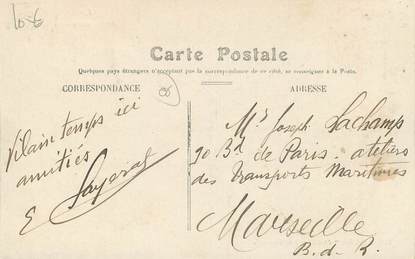 Carte Postale
Quelques pays étrangers n'acceptant pas la correspondance de ce côté, se renseigner à la Poste.
CORRESPONDANCE
Vilain temps ici
amitiés
E
ADRESSE
Mr Joseph Lachamp
90 Bd de Paris. ateliers
des Transports Maritimes
Marseille
B.d.R.